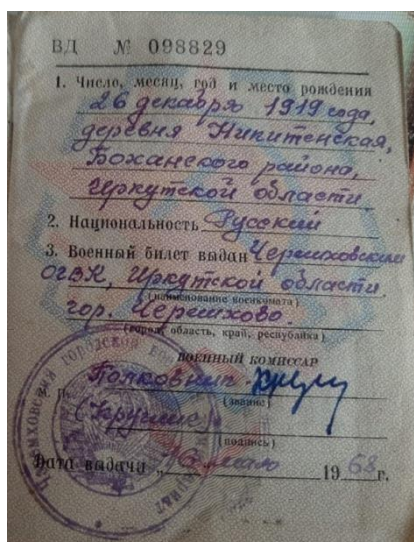 ВД № 098829
1. Число, месяц, год и место рождения
26 декабря 1919 года,
деревня Никитенская,
Боханского района,
Иркутской области.
2. Национальность Русский
3. Военный билет выдан Черемховским
ОГВК, Иркутской области
(наименование военкомата)
гор. Черемхово.
(город, область, край, республика)
ВОЕННЫЙ КОМИССАР
Полковник
(звание)
(подпись)
Дата выдачи 1968 г.